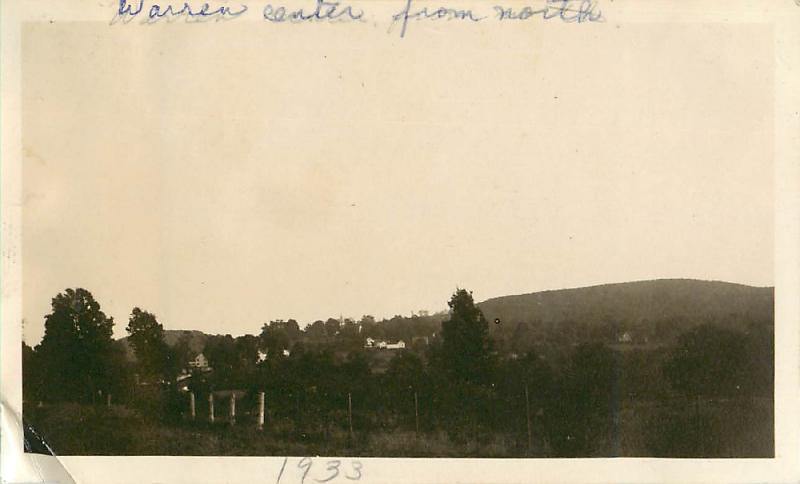 Warren center from north
1933